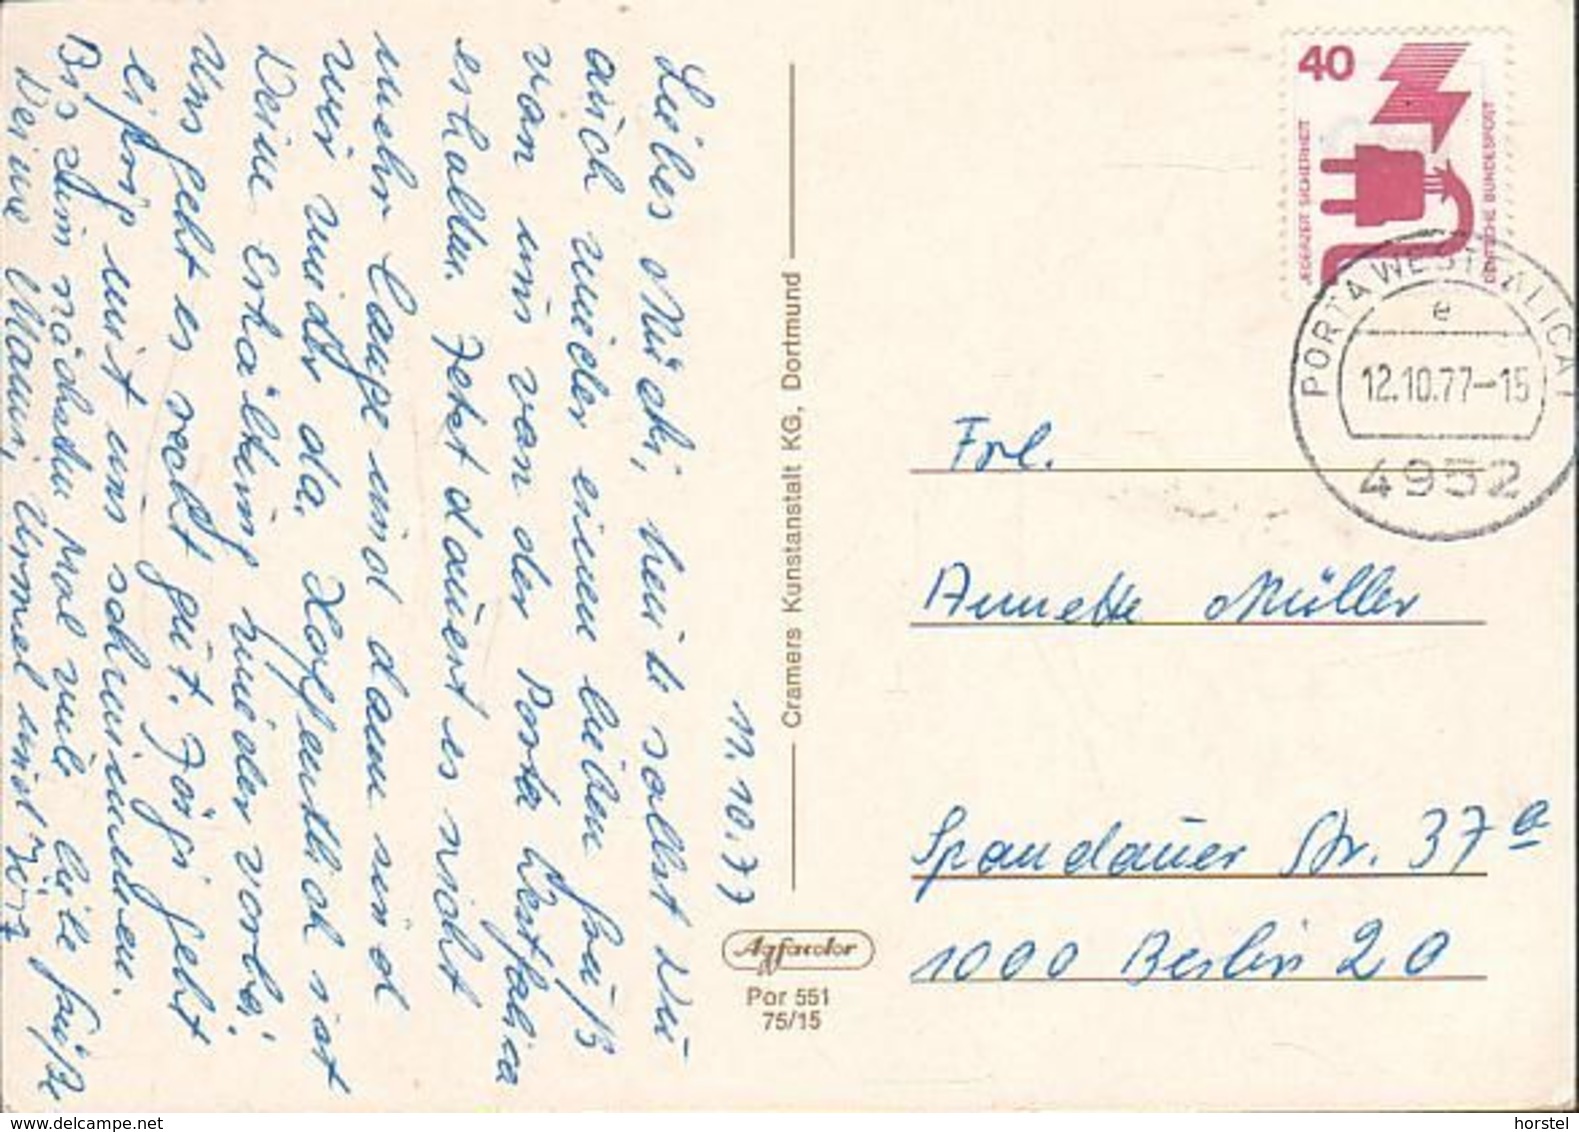 11.10.77
Liebes Mücki, heute sollst Du
auch wieder einen lieben Gruß
von uns von der Porta Westfalica
erhalten. Jetzt dauert es nicht
mehr lange und dann sind
wir wieder da. Hoffentlich ist
Deine Erkältung wieder vorbei.
Uns geht es recht gut. Jörg geht
eifrig mit uns schwimmen.
Bis zum nächsten Mal viele liebe Grüße
Deine Mami, und Jörg
Cramers Kunstanstalt KG, Dortmund
Agfacolor
Por 551
75/15
40
JEDERZEIT SICHERHEIT
DEUTSCHE BUNDESPOST
PORTA WESTFALICA 1
e
12.10.77-15
4952
Frl.
Annette Müller
Spandauer Str. 37a
1000 Berlin 20
www.delcampe.net
horstel